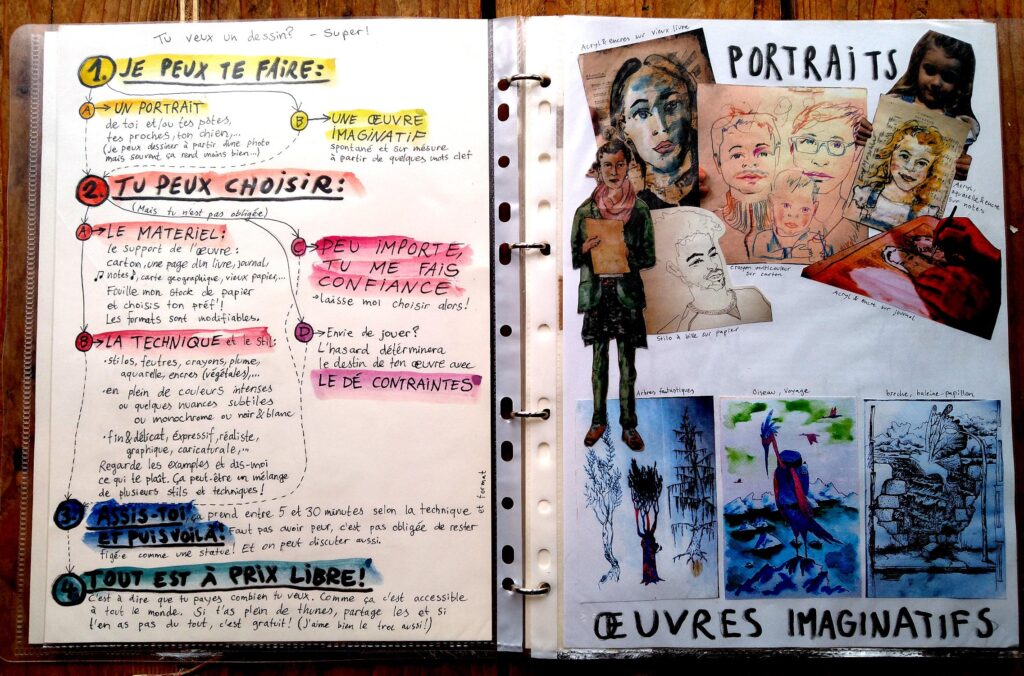 Tu veux un dessin? - Super!
1. JE PEUX TE FAIRE:
A → UN PORTRAIT
de toi et/ou tes pâtes,
tes proches, ton chien,...
(Je peux dessiner à partir d'une photo
mais souvent ça rend moins bien...)
B → UNE ŒUVRE
IMAGINATIF
spontané et sur mésure
à partir de quelques mots clef
2. TU PEUX CHOISIR:
(Mais tu n'est pas obligée)
A → LE MATERIEL:
le support de l'œuvre:
carton, une page d'un livre, journal,
♫ notes ♪, carte geographique, vieux papier,...
Fouille mon stock de papier
et choisis ton préf'!
Les formats sont modifiables.
B → LA TECHNIQUE et le stil:
• stilos, feutres, crayons, plume,
aquarelle, encres (végétales),...
• en plein de couleurs intenses
ou quelques nuances subtiles
ou monochrome ou noir & blanc
• fin & délicat, éxpressif, réaliste,
graphique, caricaturale,...
Regarde les examples et dis-moi
ce qui te plast. Ça peut être un mélange
de plusieurs stils et techniques!
C → PEU IMPORTE,
TU ME FAIS
CONFIANCE
→ laisse moi choisir alors!
D → Envie de jouer?
L'hasard détérminera
le destin de ton œuvre avec
LE DÉ CONTRAINTES
3. ASSIS-TOI ça prend entre 5 et 30 minutes selon la technique et format
ET PUIS VOILÀ: Faut pas avoir peur, c'est pas obligée de rester
figé·e comme une statue! Et on peut discuter aussi.
4. TOUT EST À PRIX LIBRE!
C'est à dire que tu payes combien tu veux. Comme ça c'est accessible
à tout le monde. Si t'as plein de thunes, partage les et si
t'en as pas du tout, c'est gratuit! (J'aime bien le troc aussi!)
PORTRAITS
Acryl & encres sur vieux livre
Acryl, aquarelle & encre
sur notes
crayon multicouleur
sur carton
Acryl & encre sur journal
Stilo à bille sur papier
Arbres fantastiques
Oiseau, voyage
broche, baleine-papillon
ŒUVRES IMAGINATIFS